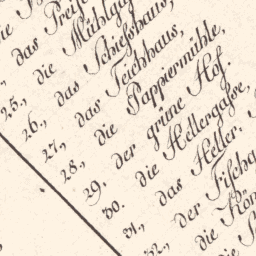 die
das Preiß
die Mühlgaß
25., das Schießhaus,
26., das Teichhaus,
27., die Pappiermühle,
28., der grüne Hof.
29. die Hellergaße,
30. das Heller
31., der Fischa
32., die Kön
die